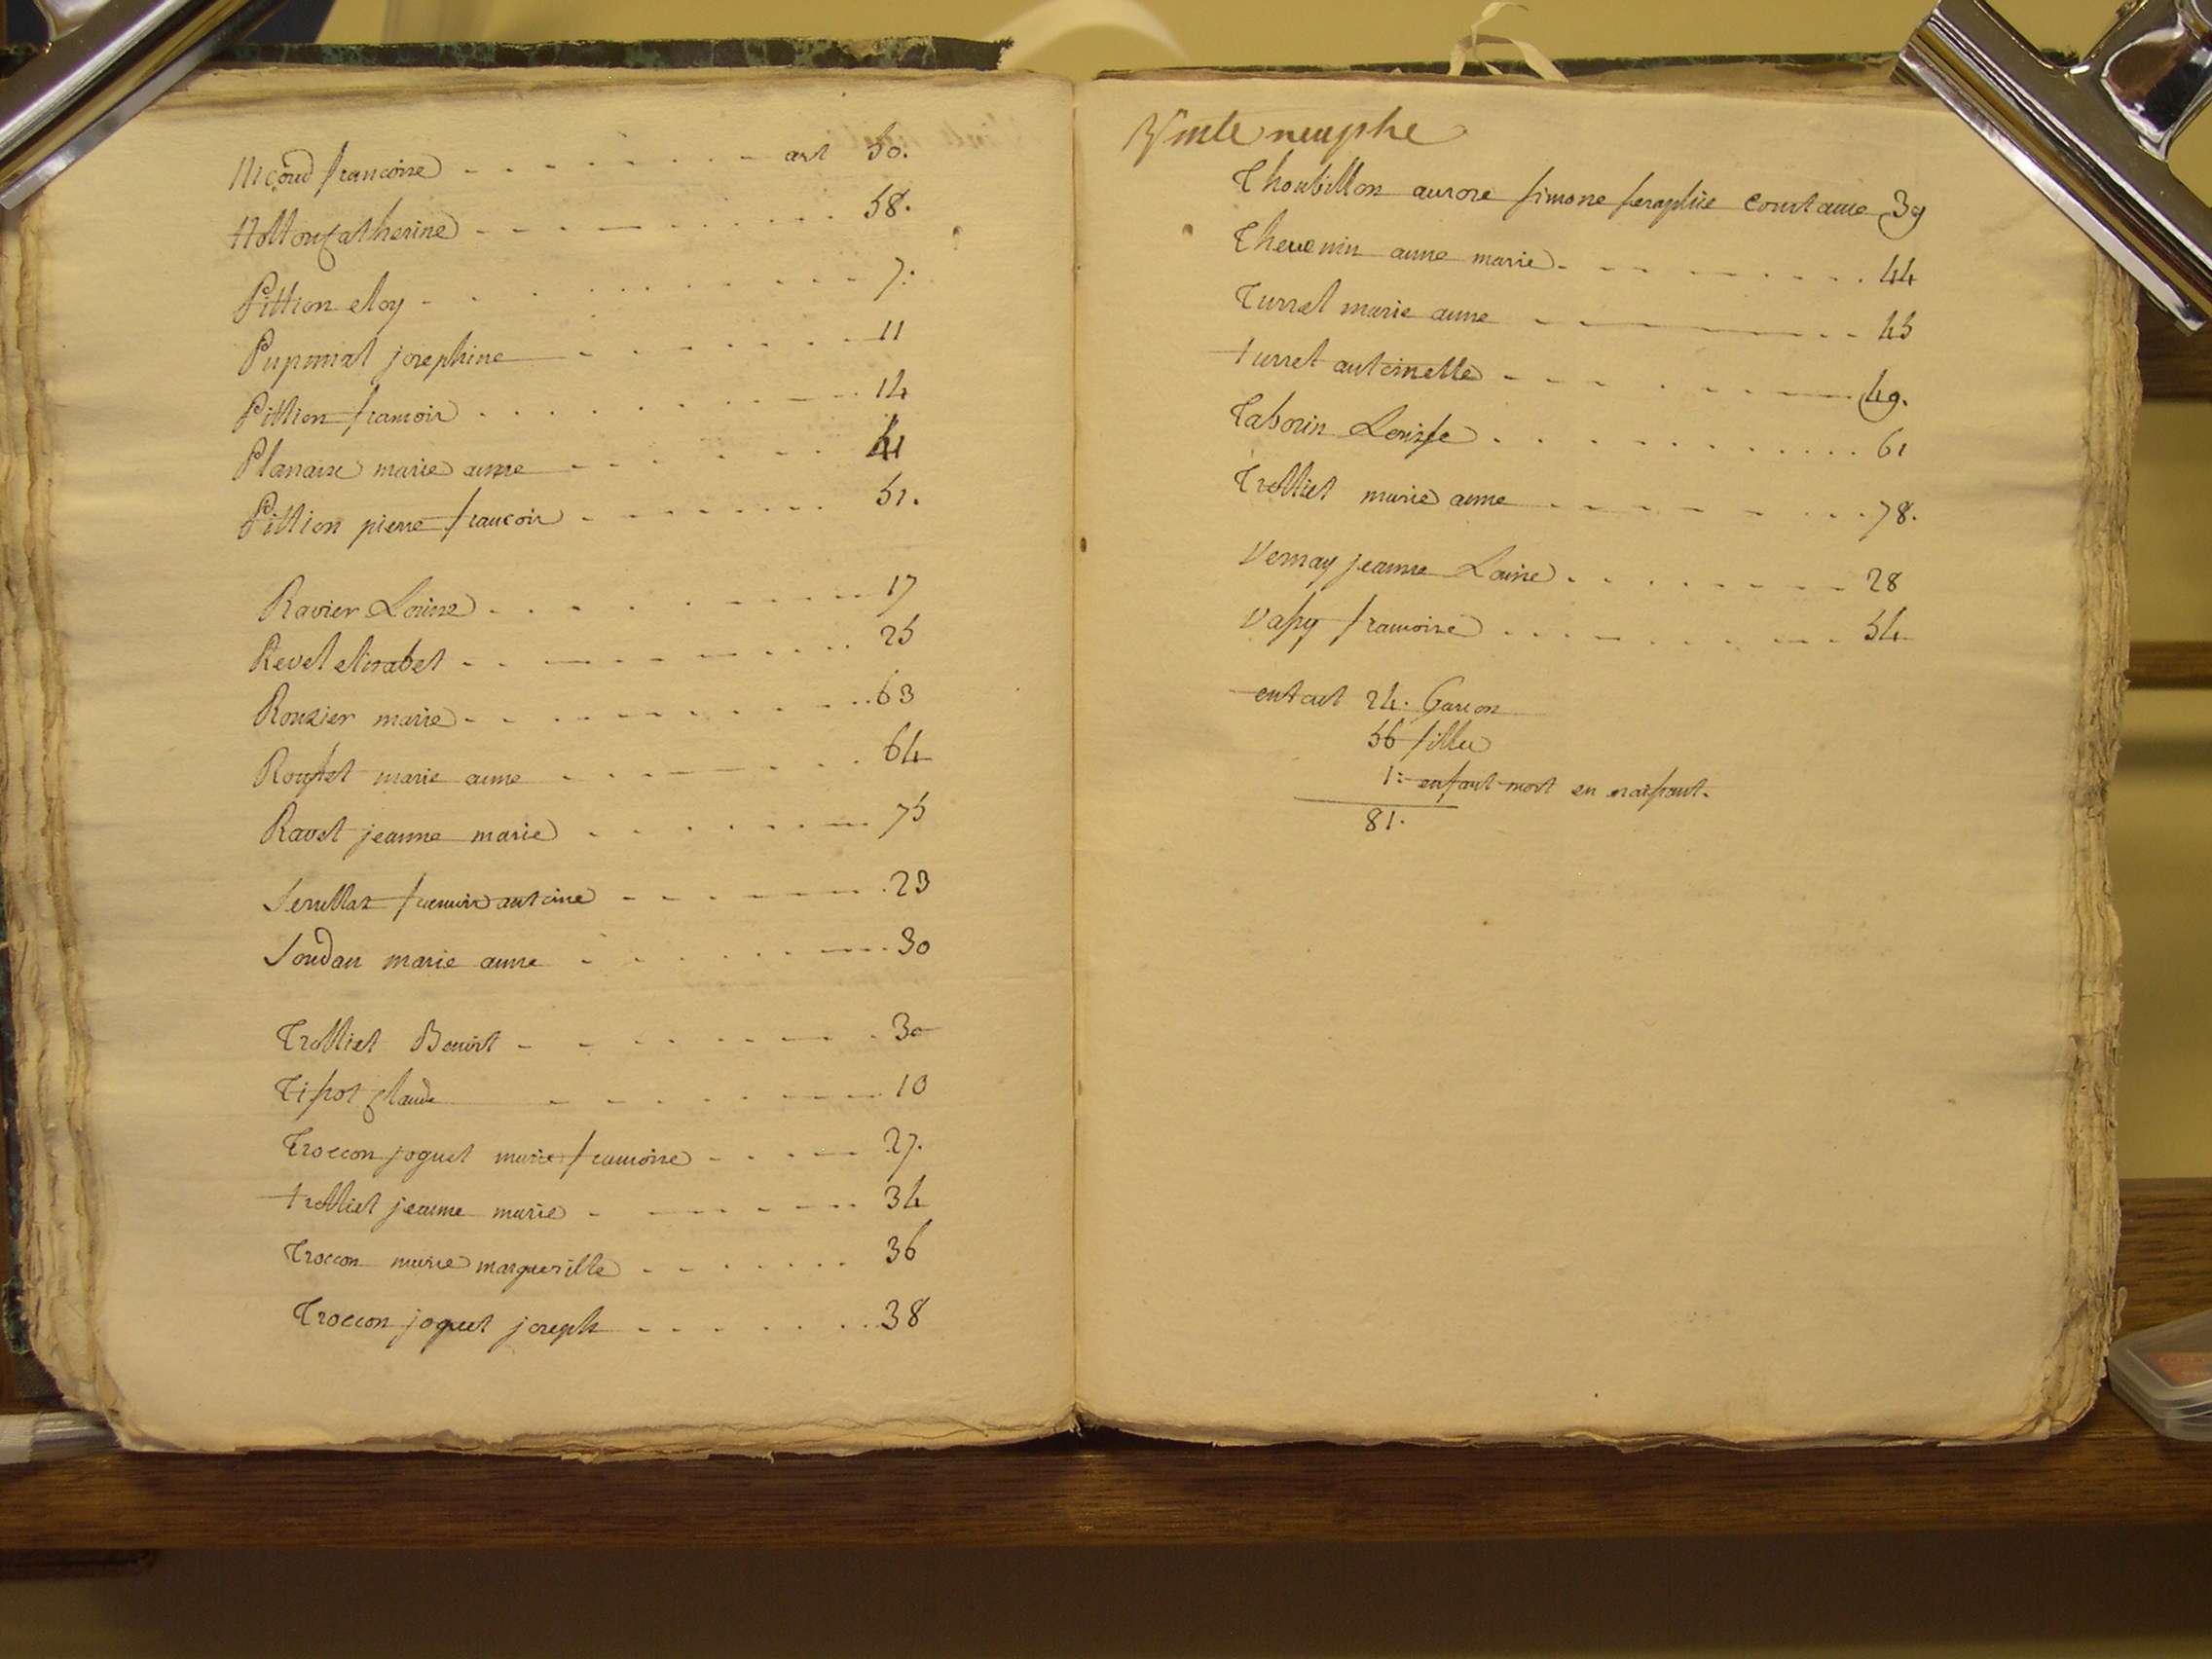 Nicoud francoise art 50.
Nollon Catherine 58.
Pittion eloy 7.
Pupunat josephine 11
Pittion francois 14
Planaise marie anne 41
Pittion pierre francois 51.
Ravier Louise 17
Revel elisabet 25
Rouzier marie 63
Rouset marie anne 64
Ravet jeanne marie 75
Serullaz francois antoine 23
Soudan marie anne 30
Trolliet Benoist 30
Tissot Claude 10
Troccon joguet marie francoise 27.
trolliet jeanne marie 34
Troccon marie margueritte 36
Troccon joguet joseph 38
Vinte neuphe
Thoubillon aurore simone seraphie Constance 39
Thevenin anne marie 44
Turrel marie anne 45
turrel antoinette 49.
Taborin Louisse 61
Trolliet marie anne 78.
Vernay jeanne Louise 28
Vassy francoise 54
entout 24. Garcon
56 filles
1: enfant mort en naissant.
81.